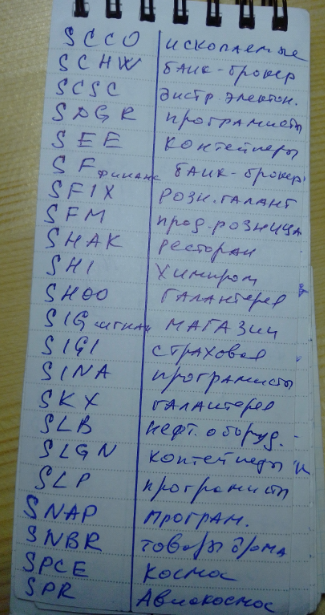 SCCO ископаемые
SCHW банк-брокер
SCSC дистр электон.
SDGR програмисты
SEE контейнеры
SF финанс банк-брокер
SFIX розн. галант
SFM прод. розница
SHAK ресторан
SHI химпром
SHOO галантерея
SIG сигнал магазин
SIGI страховая
SINA програмисты
SKX галантерея
SLB нефт. оборуд.
SLGN контейнеры
SLP програмисты
SNAP програм.
SNBR товары дома
SPCE космос
SPR Авиокосмос